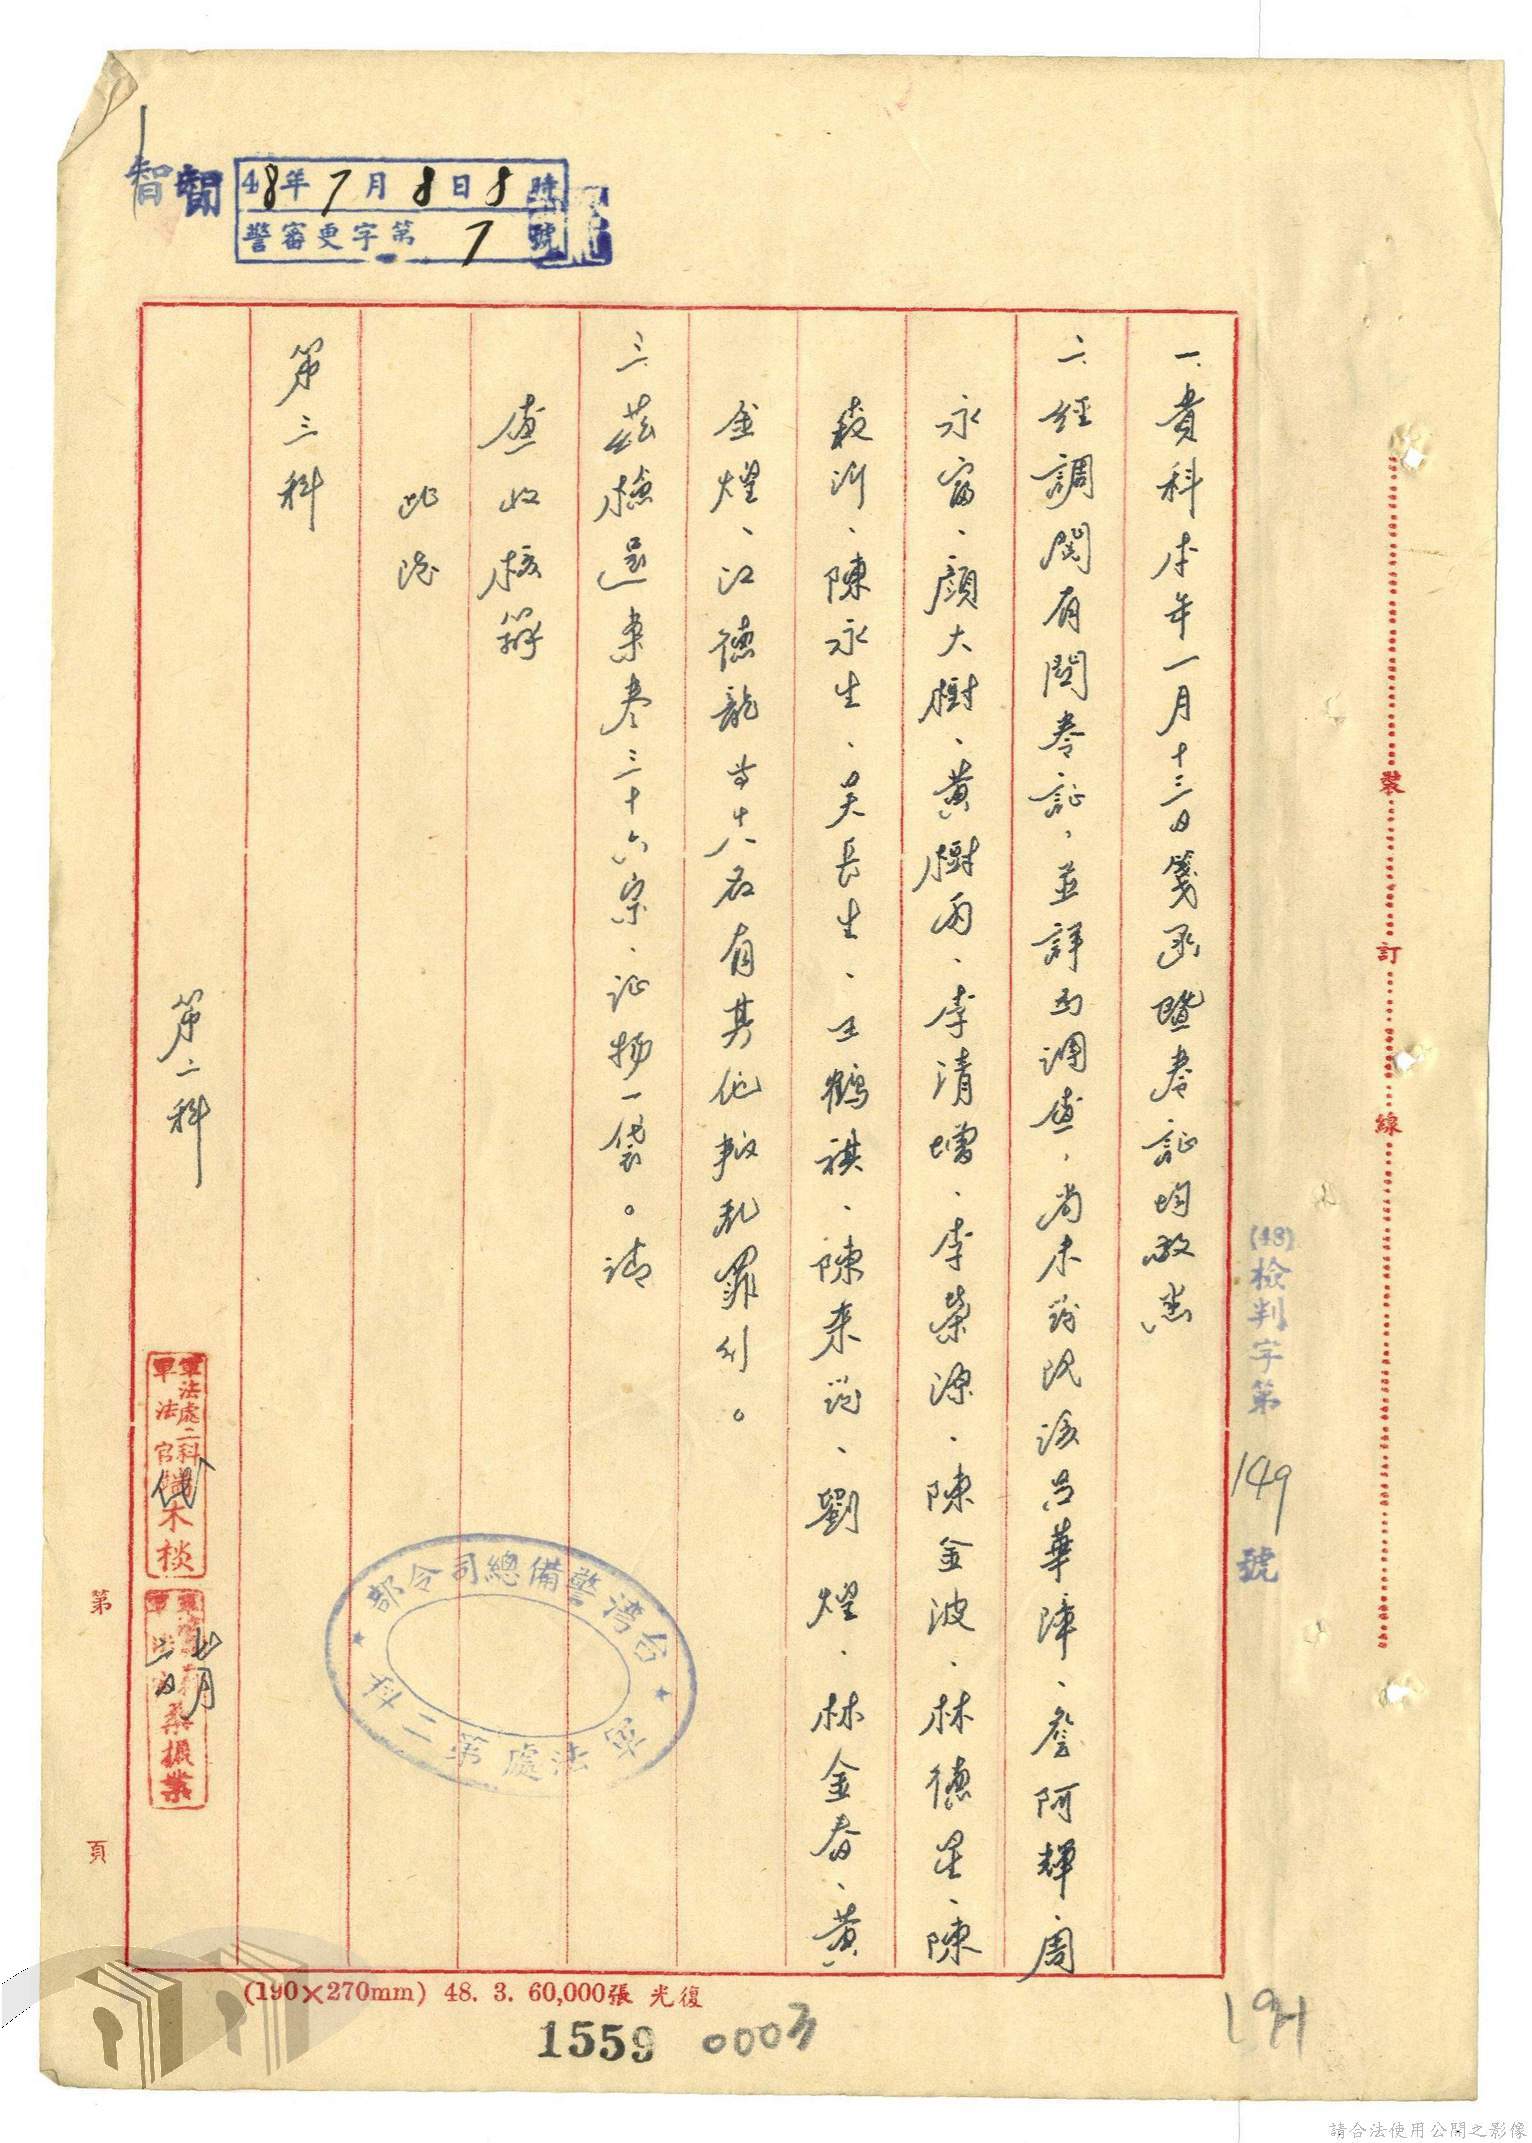 智
48年7月8日8時
警審更字第7號
一、貴科本年一月十三日箋函暨卷証均敬悉
二、經調閱有關卷証，並詳為調查，尚未發現該呂華璋、詹阿輝、周
永富、顏大樹、黃樹雨、李清增、李榮源、陳金波、林德星、陳
毅沂、陳永生、吳長生、王鶴祺、陳來發、劉煌、林金春、黃
金煌、江德龍等十八名有其他叛亂罪刊。
三、茲檢還案卷三十六宗、証物一袋。請
查收核辦
此致
第三科
第二科
軍法處二科
軍法官 木棪
代
七月
台灣警備總司令部
軍法處第二科
(48)檢判字第149號
裝訂線
第 頁
(190×270mm) 48. 3. 60,000張 光復
1559
00003
請合法使用公開之影像